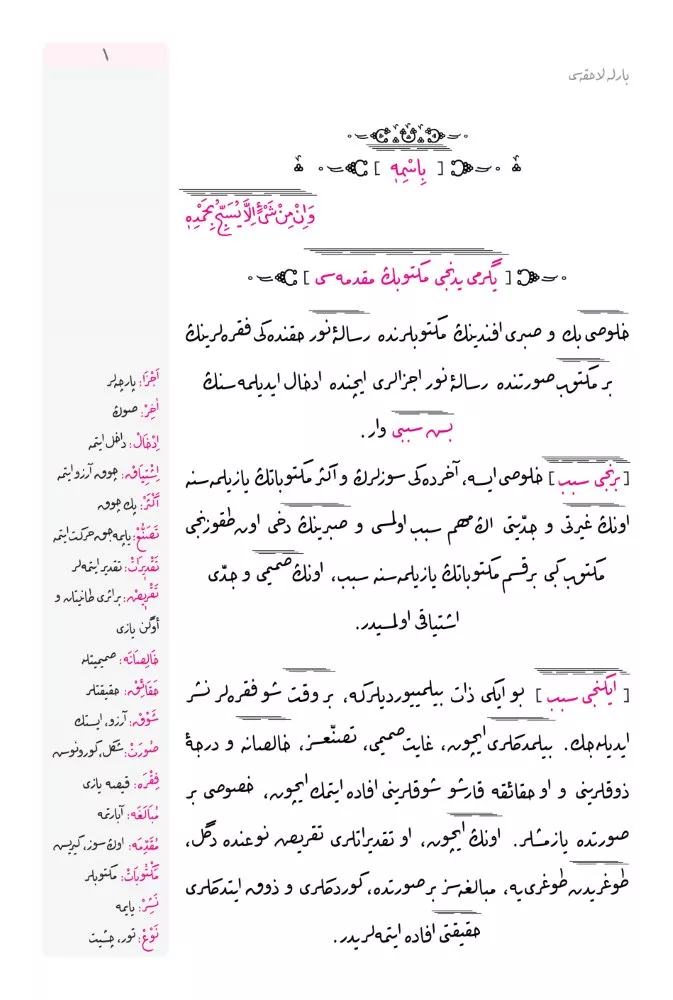 ١
بارلا لاحقه‌سی
[ بِاسْمِهٖ ]
وَاِنْ مِنْ شَیْءٍ اِلَّا يُسَبِّحُ بِحَمْدِهٖ
[ يگرمی يدنجی مكتوبك مقدمه‌سی ]
خلوصی بك و صبری افندينڭ مكتوبلرنده رسالهٔ نور حقنده‌كی فقره‌لرينڭ
بر مكتوب صورتنده رسالهٔ نور اجزالری ايچنده ادخال ايديلمه‌سنڭ
بش سببی وار.
[برنجی سبب] خلوصی ايسه، آخرده‌كی سوزلرڭ و اكثر مكتوباتڭ يازيلمه‌سنه
اونڭ غيرتی و جدّيتی اڭ مهم سبب اولمسی و صبرينڭ دخی اون طقوزنجی
مكتوب كبی برقسم مكتوباتڭ يازيلمه‌سنه سبب، اونڭ صميمی و جدّی
اشتياقی اولمسيدر.
[ايكنجی سبب] بو ايكی ذات بيلمييورديلركه، بر وقت شو فقره‌لر نشر
ايديله‌جك. بيلمدكلری ايچون، غايت صميمی، تصنّعسز، خالصانه و درجهٔ
ذوقلرينی و او حقائقه قارشو شوقلرينی افاده ايتمك ايچون، خصوصی بر
صورتده يازمشلر. اونڭ ايچون، او تقديراتلری تقريض نوعنده دگل،
طوغريدن طوغری‌يه، مبالغه‌سز بر صورتده، كوردكلری و ذوق ايتدكلری
حقيقتی افاده ايتمه‌لريدر.
اَجْزَا: پارچه‌لر
اٰخِرْ: صوڭ
اِدْخَالْ: داخل ايتمه
اِشْتِيَاقْ: چوق آرزو ايتمه
اَكْثَرْ: پك چوق
تَصَنُّعْ: ياپمه‌جق حركت ايتمه
تَقْدِيرَاتْ: تقدير ايتمه‌لر
تَقْرِيضْ: بر اثری طانيتان و
اوگن يازی
خَالِصَانَه: صميميتله
حَقَائِقْ: حقيقتلر
شَوْقْ: آرزو، ايستك
صُورَتْ: شكل، كورونوش
فِقْرَه: قيصه يازی
مُبَالَغَه: آبارتمه
مُقَدِّمَه: اوڭ سوز، كيريش
مَكْتُوبَاتْ: مكتوبلر
نَشِرْ: يايمه
نَوْعْ: تور، چشيت